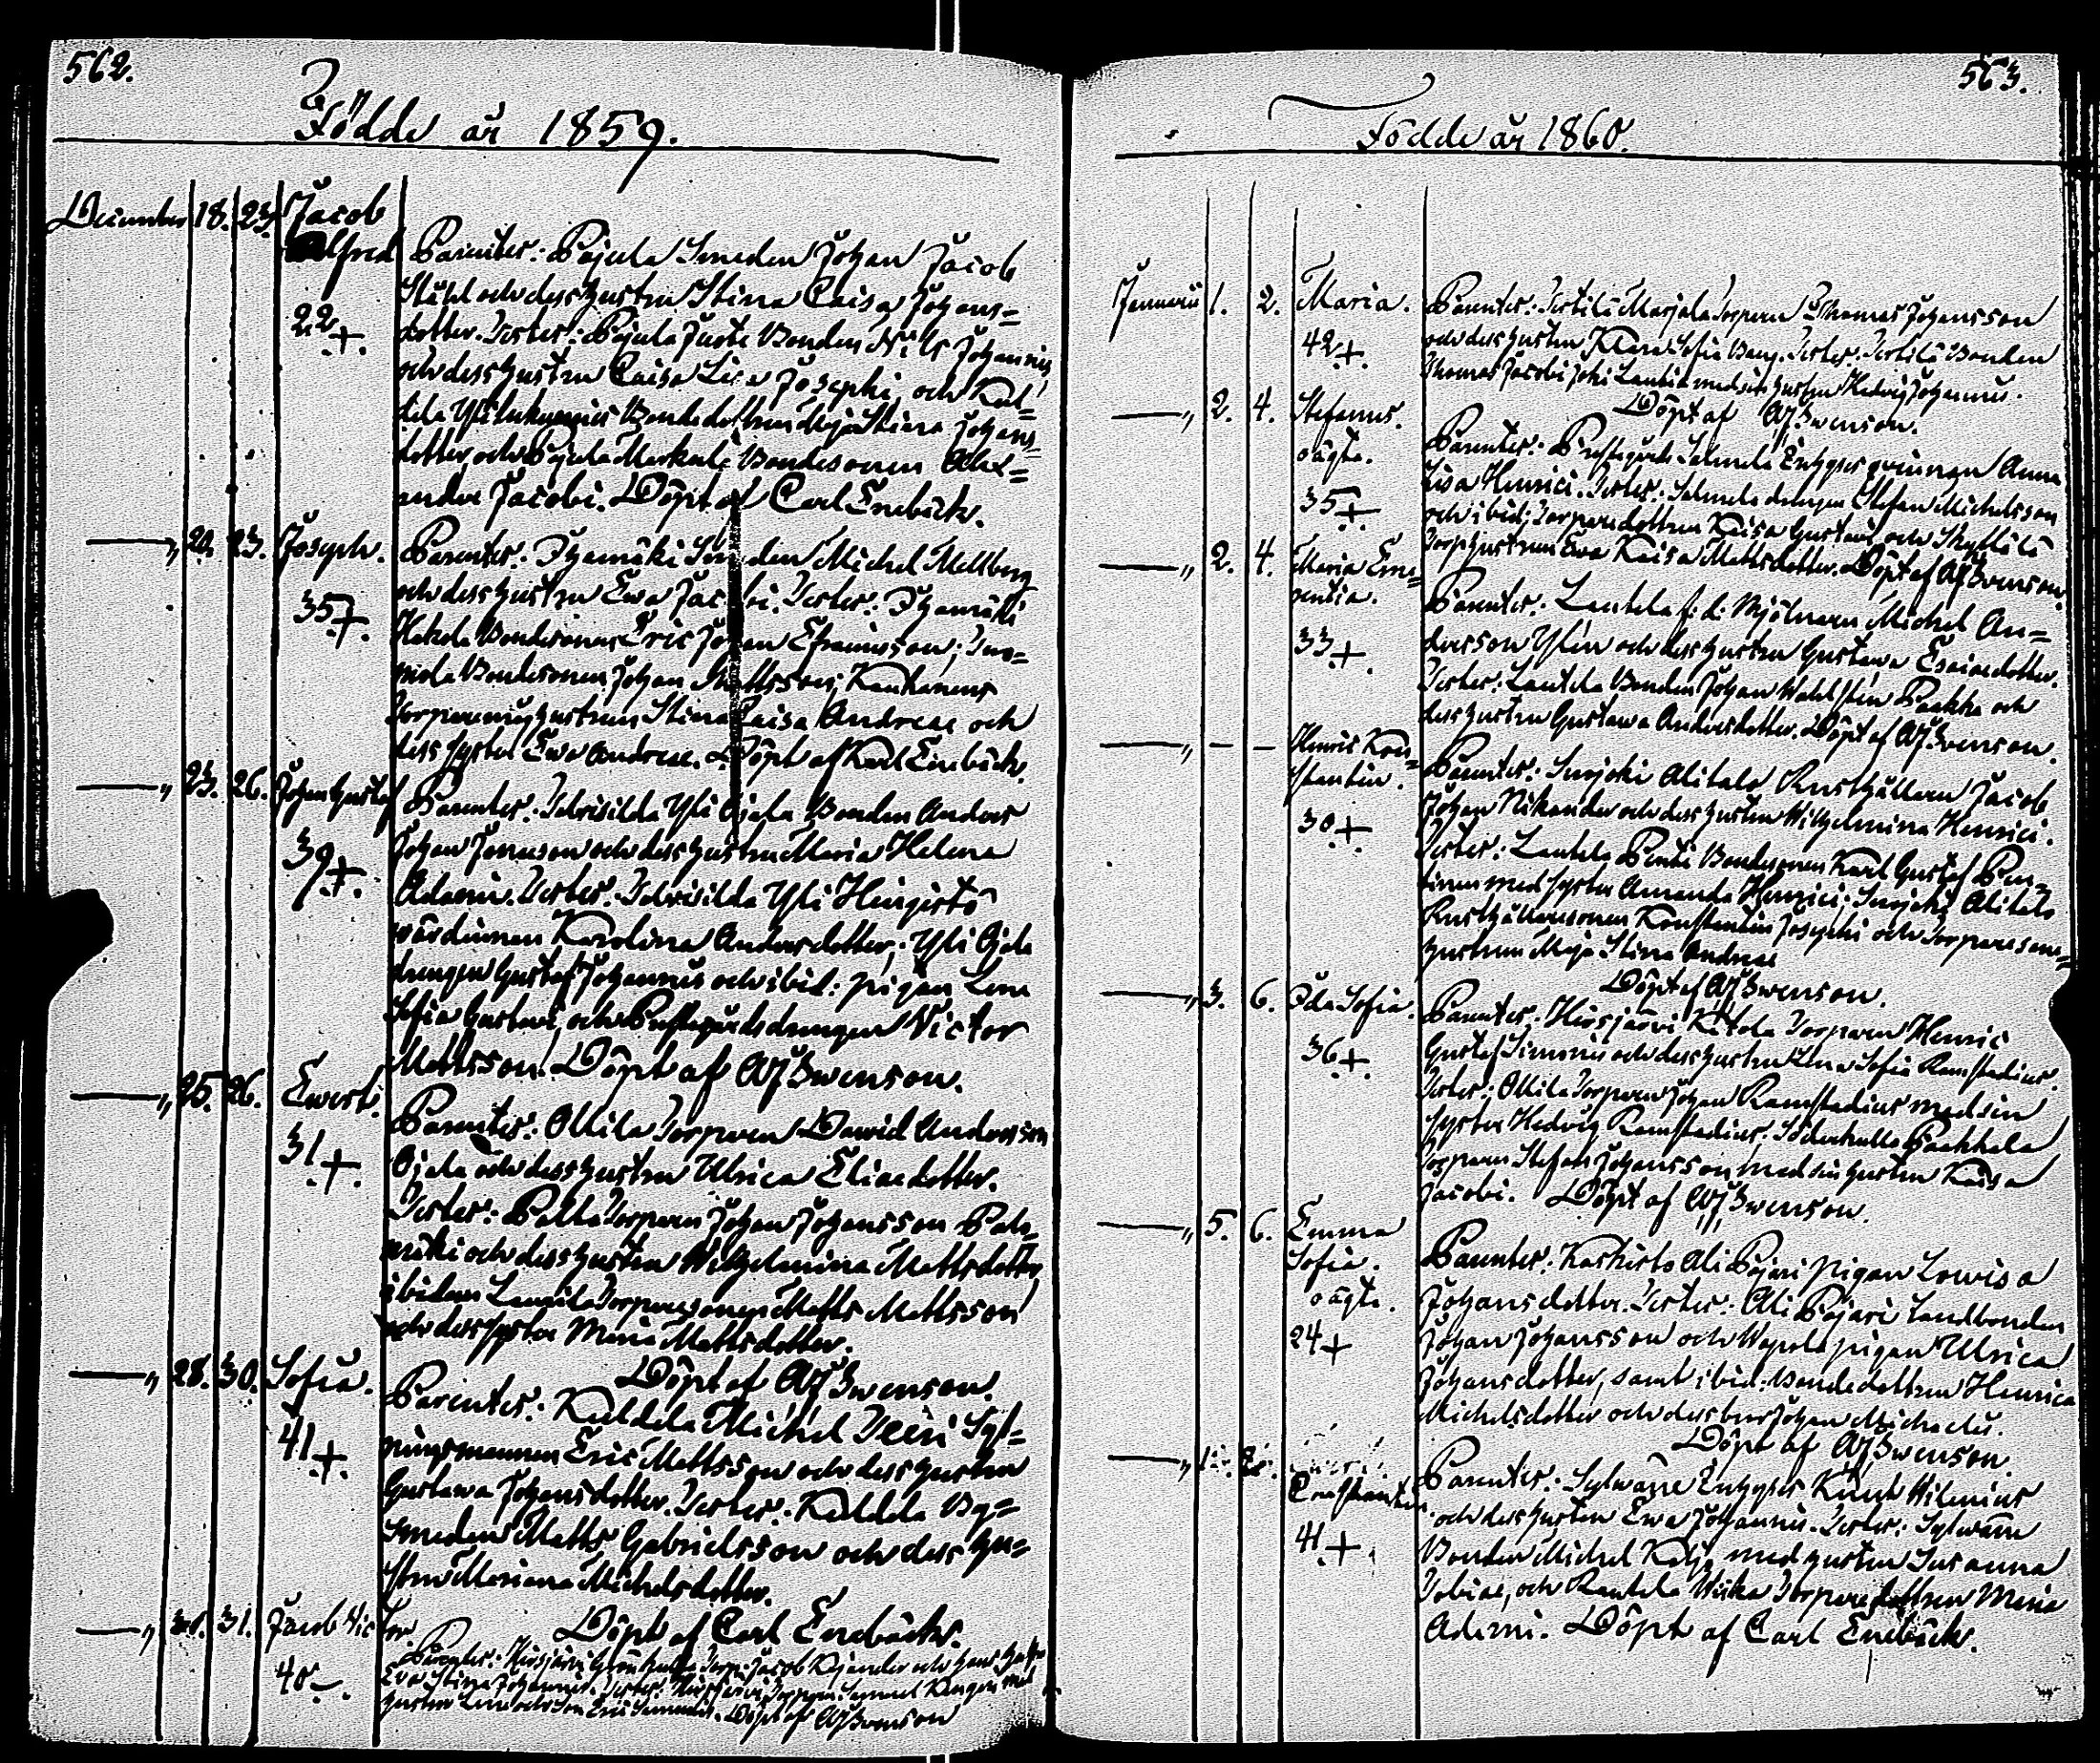 562.
Födde år 1859.
December 18. 23. Jacob
Alfred Parenter: Pajula Smeden Johan Jacob
Ståhl och dess hustru Stina Caisa Johans=
22 dotter. Tester: Pajula Juote Bonden Nils Johannis
och dess hustru Caisa Lisa Josephi, och Kal=
dila Bondedottren Maja Stina Johans
dotter, och Pajula Markula Bondesonen Alex=
ander Jacobi. Döpt af Carl Enebäck.
— „ 20. 23. Joseph. Parenter: Smeden Michel Mellberg
35 och dess hustru Ewa Jacobi. Tester:
Bondesonen Eric Johan Efraimsson;
Bondesonen Johan Mattsson;
hustrun Stina Caisa Andreae och
dess syster Ewa Andreae. Döpt af Karl Enebäck.
— „ 23. 26. Johan Gustaf Parenter: Yli Ojala Bonden Anders
39 Johan Jonasson och dess hustru Maria Helena
Adami. Tester: Yli Hingistö
värdinnan Karolina Andersdotter; Yli Ojala
drengen Gustaf Johannis och ibid: pigan Lena
Sofia Gustavi, och Prestgårdsdrengen Victor
Mattsson. Döpt af Swenson.
— „ 25. 26. Ewert. Parenter: Ollila Torparen David Andersson
31 Ojala och dess hustru Ulrica Eliaedotter.
Tester: Torparen Johan Johansson Palo=
mäki och dess hustru Wilhelmina Mattsdotter,
ibidem Torparesonen Matts Mattsson
och dess syster Maria Mattsdotter.
Döpt af Swenson.
— „ 28. 30. Sofia. Parenter: Kaldela Michel Syt=
41 ningsmannen Eric Mattsson och dess hustru
Gustawa Johansdotter. Tester: Kaldela By=
smeden Matts Gabrielsson och dess hu=
stru Mariana Michelsdotter.
Döpt af Carl Enebäck.
— „ 31. Jacob Victor
40 Parenter: Hirsjärvi Jacob och hans hustru
Eva Stina Johannis. Tester: Hirsjärvi Torparen Samuel med
hustru Lena och Son Eric Samuelis. Döpt af Swenson
563.
Födde år 1860.
Januarii 1. 2. Maria. Parenter: Torttila Marjala Torparen Thomas Johansson
42 och dess hustru Klara Sofia Tester: Torttila Bonden
Thomas Jacobi med sin hustru Hedvig Johannis.
Döpt af Swenson.
— „ 2. 4. Stefanus. Parenter: Prestgårds Enhyses qvinnan Anna
oägta. Lisa Henrici. Tester: drengen Stefan Michelsson
35 och ibid: Torparedottren Kaisa Gustavi och
Torphustrun Ewa Kaisa Mattsdotter. Döpt af Swenson.
— „ 2. 4. Maria Eme=
rentia. Parenter: Lautela f. d. Mjölnaren Michel An=
33 dersson Ylén och dess hustru Gustawa Esaiaedotter.
Tester: Lautela Bonden Johan Wahlstén och
dess hustru Gustawa Andersdotter. Döpt af Swenson.
— „ — — Henric Kon=
stantin. Parenter: Suojoki Alitalo Rusthållaren Jacob
30 Johan Nikander och dess hustru Wilhelmina Henrici.
Tester: Lautela Pentti Bondesonen Karl Gustaf Pen=
tinen med syster Amanda Henrici; Suojoki Alitalo
Rusthållaresonen Konstantin Josephi och Torparesone=
hustrun Maja Stina Andreae
Döpt af Swenson.
— „ 3. 6. Oda Sofia. Parenter: Hirsjärvi Torparen Henric
36 Gustaf Simonis och dess hustru Lena Sofia Ramstadius.
Tester: Ollila Torparen Johan Ramstadius med sin
syster Hedvig Ramstadius; Söderkulla
Torparen Stefan Johansson med sin hustru Kaisa
Jacobi. Döpt af Swenson.
— „ 5. 6. Emma
Sofia. Parenter: Karkisto Ali Pajari pigan Lowisa
oägta. Johansdotter. Tester: Ali Pajari Landbonden
24 Johan Johansson och pigan Ulrica
Johansdotter, samt ibid: Bondedottren Henrica
Michelsdotter och dess bror Johan Michaelis.
Döpt af Swenson.
— „
Constantin Parenter: Sylwäne Enhyses Knut Wilenius
41 och dess hustru Ewa Johannis. Tester: Sylwäne
Bonden Michel med hustru Susanna
Tobiae, och Rautela Torparedottren Maria
Adami. Döpt af Carl Enebäck.